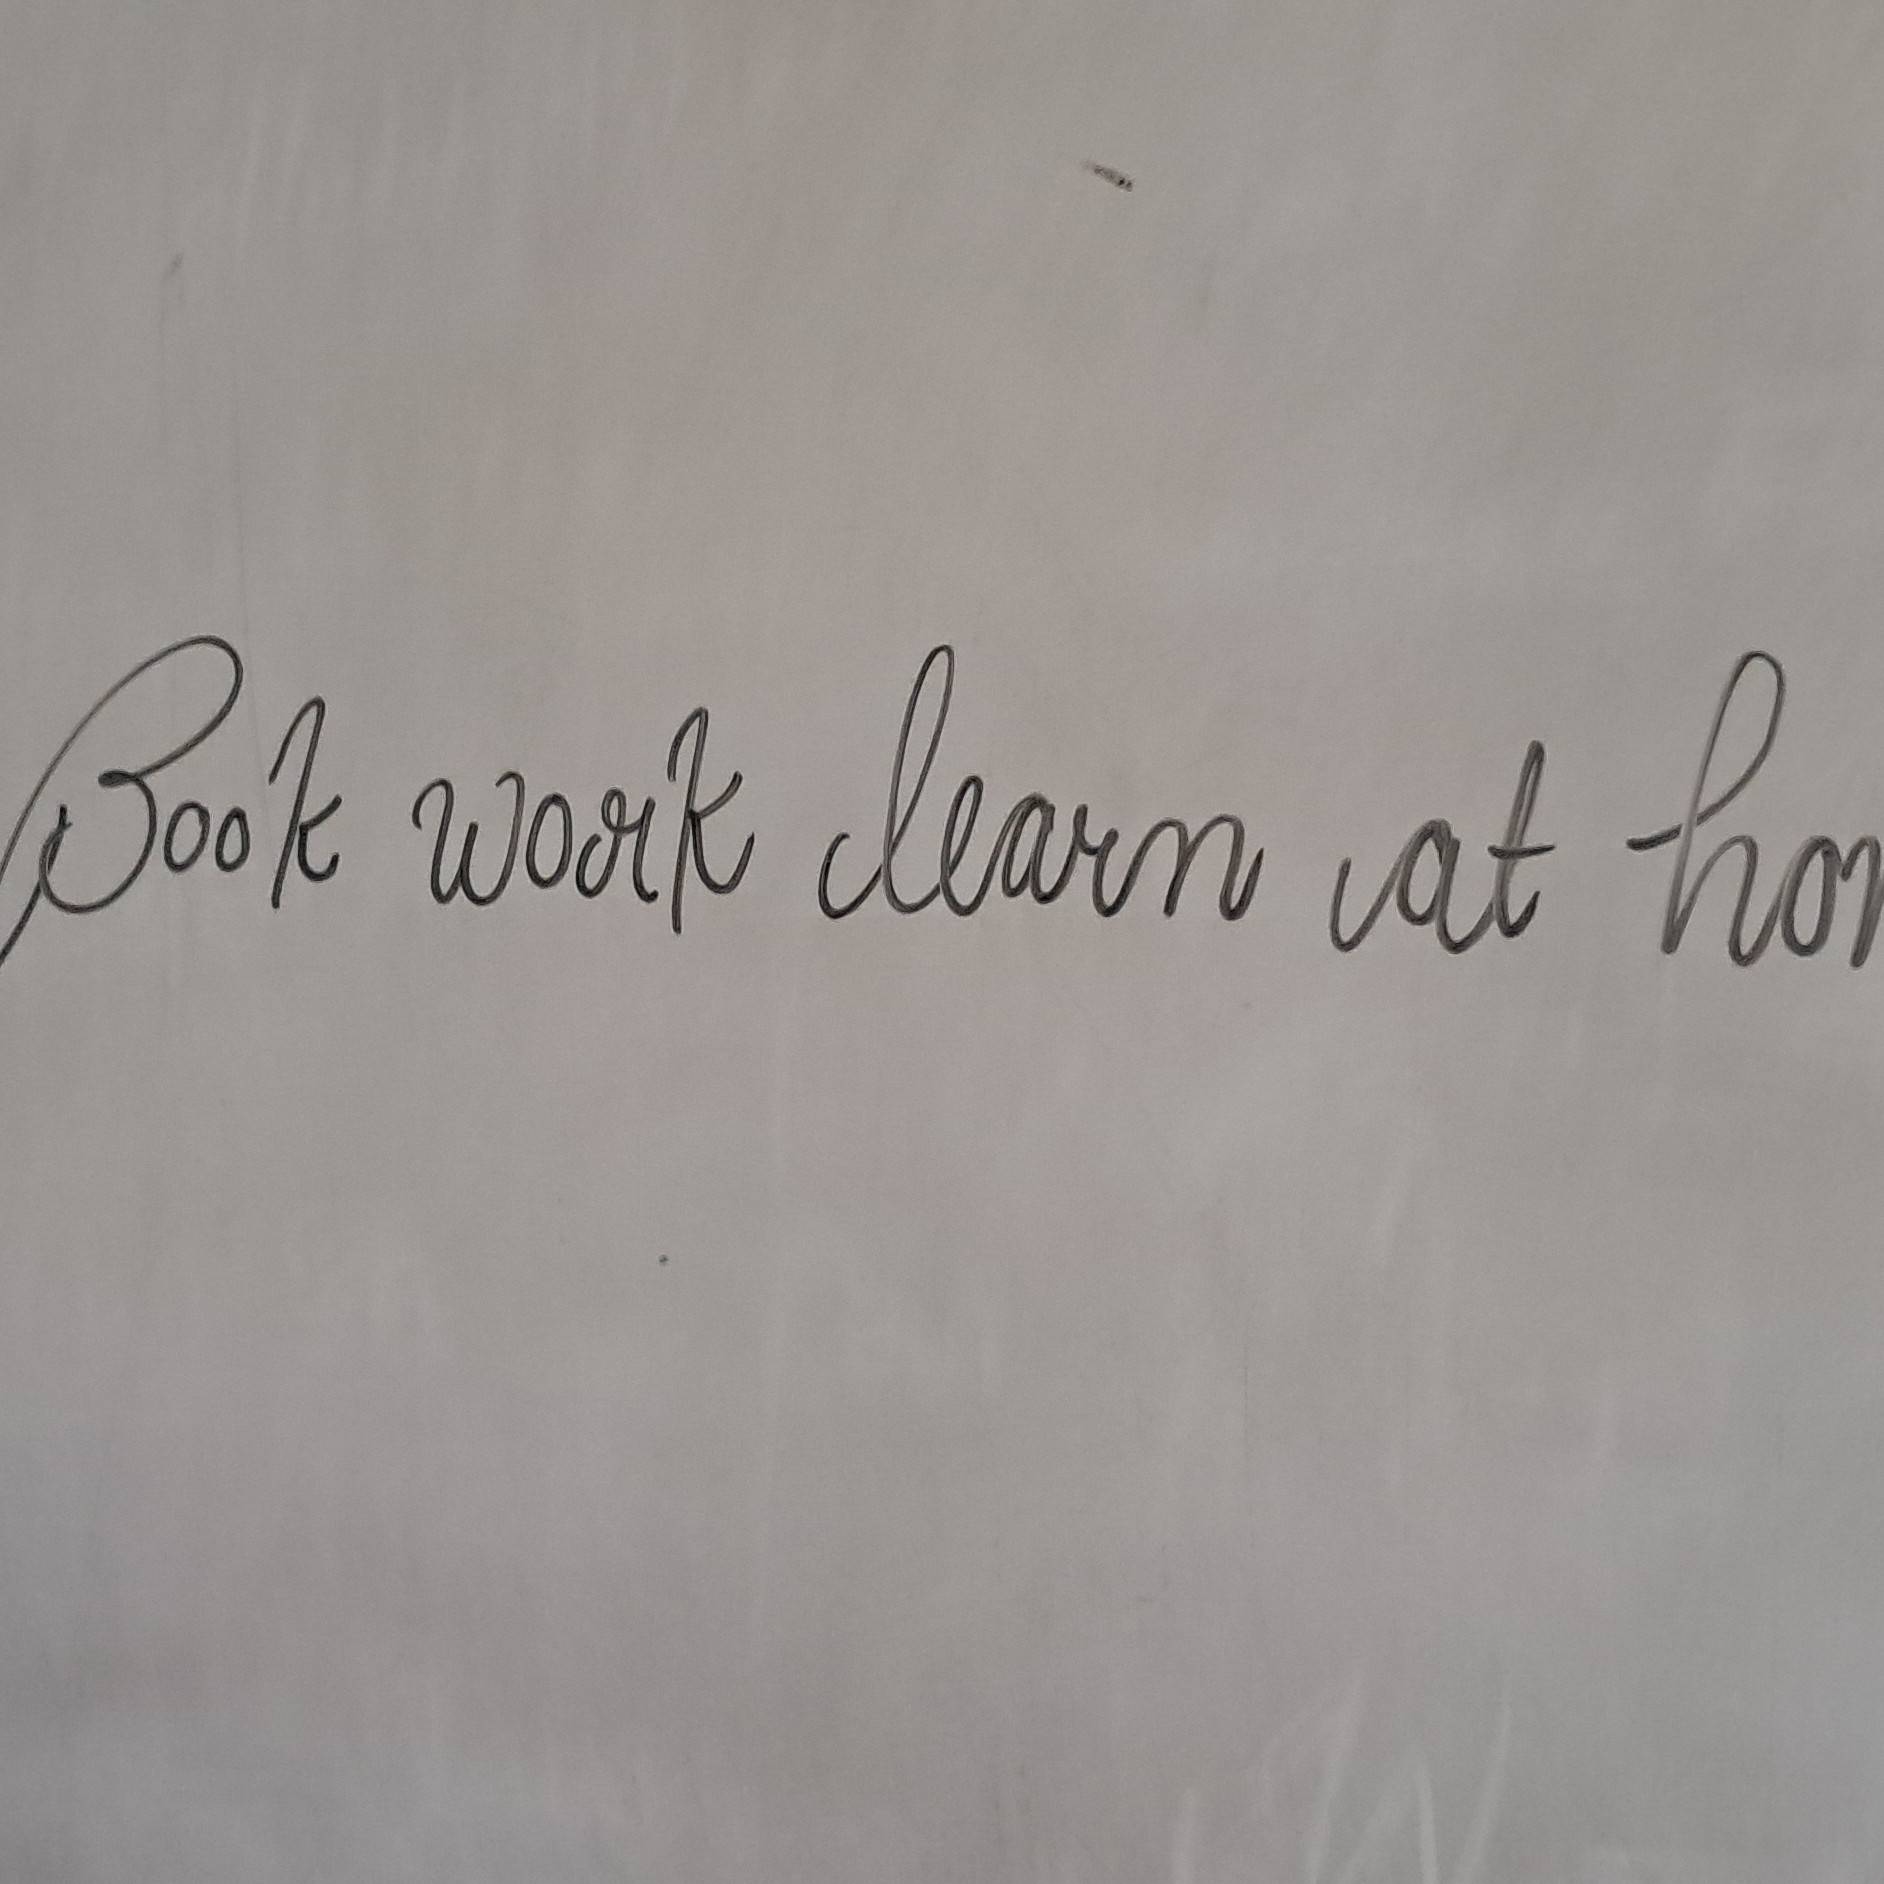 Book work learn at hom